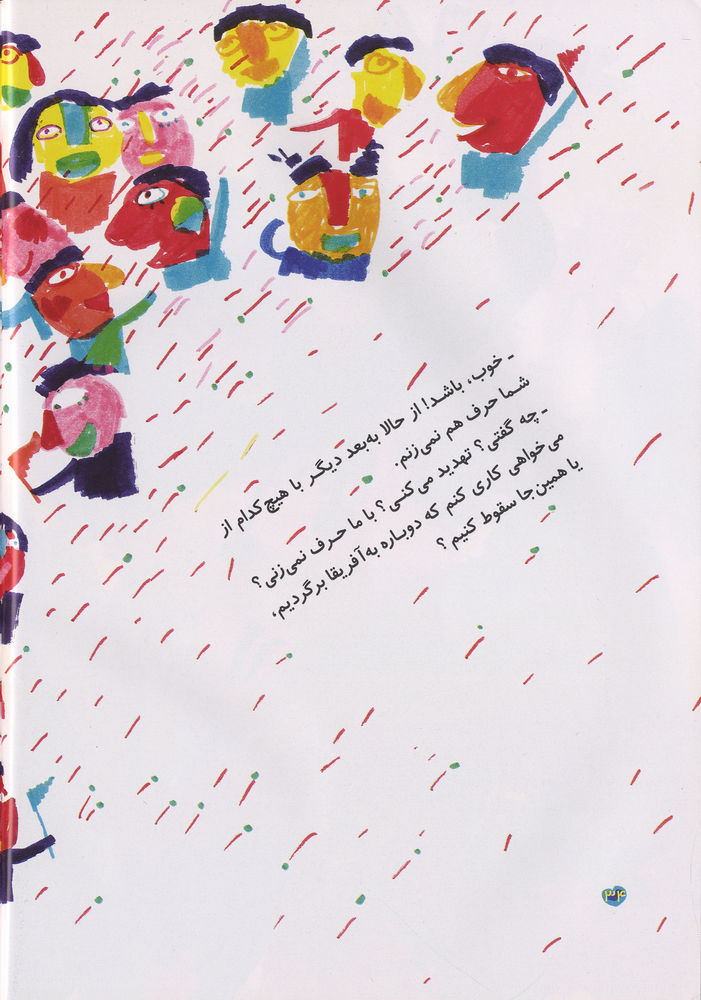 ـ خوب، باشد! از حالا به‌بعد دیگر با هیچ کدام از
شما حرف هم نمی‌زنم.
ـ چه گفتی؟ تهدید می‌کنی؟ با ما حرف نمی‌زنی؟
می‌خواهی کاری کنم که دوباره به آفریقا برگردیم،
یا همین‌جا سقوط کنیم؟
۳۴